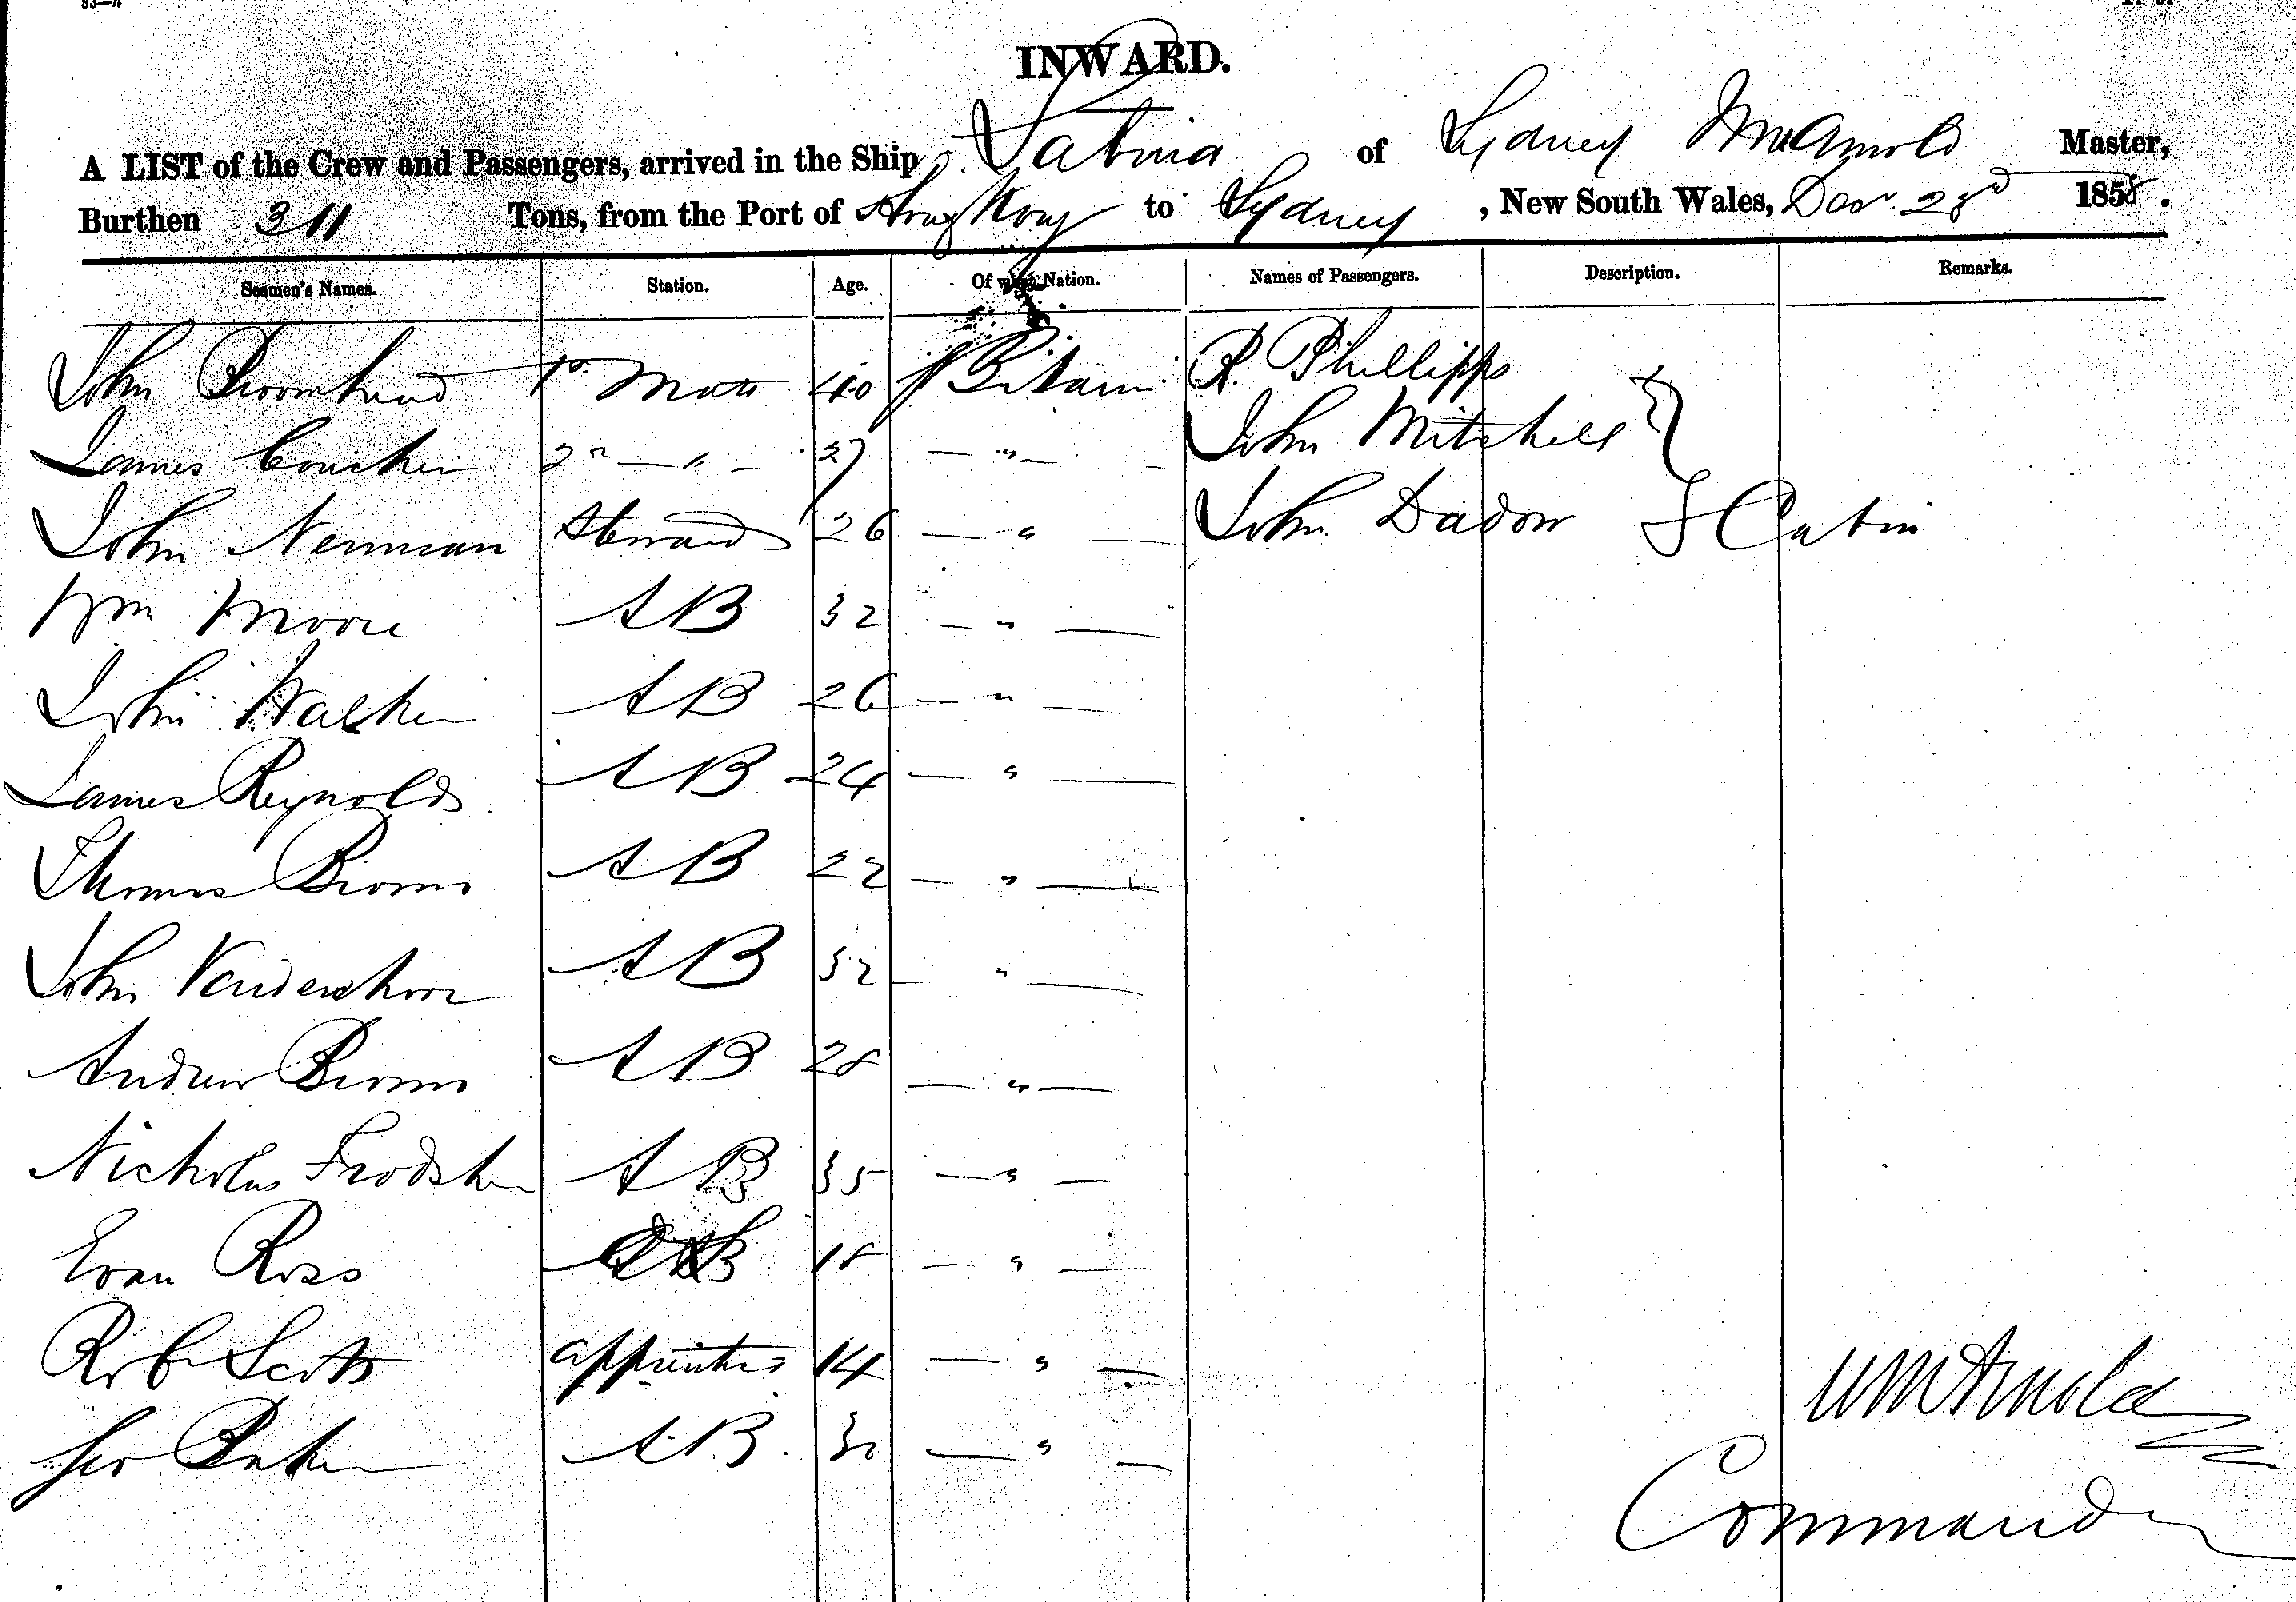 INWARD.
A LIST of the Crew and Passengers, arrived in the Ship Sabina of Sydney Wm Arnold Master,
Burthen 311 Tons, from the Port of Hong Kong to Sydney, New South Wales, 1858.
Seamen's Names. Station. Age. Of what Nation. Names of Passengers. Description. Remarks.
John 1st Mate 40 Britain R. Phillipps
James 2nd " 27 " John Mitchell
John Newman Steward 26 " John Dadow Cabin
Wm Moore AB 32 "
John Walker AB 26 "
James Reynolds AB 24 "
Thomas Brown AB 22 "
John AB 32 "
Andrew Brown AB 28 "
Nicholas AB 35 "
Evan Ross 18 "
Robt Scott apprentice 14 "
Geo Baker A.B. 30 "
Wm Arnold
Commander